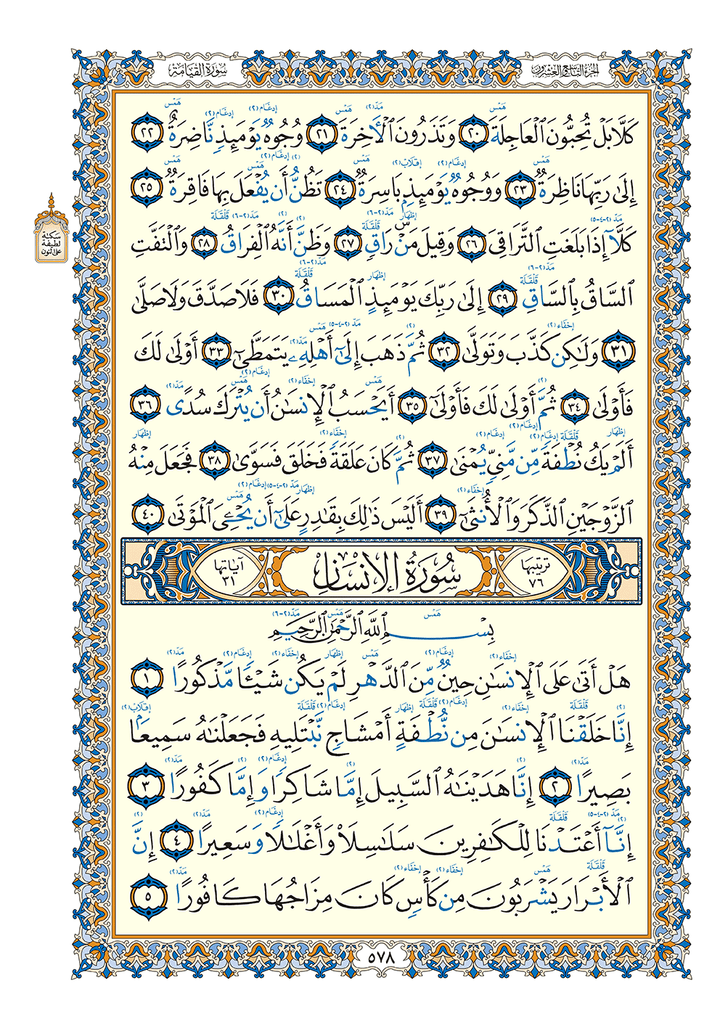 سُورَةُ القِيَامَةِ
الجُزْءُ التَّاسِعُ وَالعِشْرُونَ
كَلَّا بَلْ تُحِبُّونَ ٱلْعَاجِلَةَ ٢٠ وَتَذَرُونَ ٱلْأَخِرَةَ ٢١ وُجُوهٌ يَوْمَئِذٍ نَّاضِرَةٌ ٢٢
إِلَىٰ رَبِّهَا نَاظِرَةٌ ٢٣ وَوُجُوهٌ يَوْمَئِذٍۭ بَاسِرَةٌ ٢٤ تَظُنُّ أَن يُفْعَلَ بِهَا فَاقِرَةٌ ٢٥
كَلَّآ إِذَا بَلَغَتِ ٱلتَّرَاقِىَ ٢٦ وَقِيلَ مَنْ رَاقٍ ٢٧ وَظَنَّ أَنَّهُ ٱلْفِرَاقُ ٢٨ وَٱلْتَفَّتِ
سكتة لطيفة على النون
ٱلسَّاقُ بِٱلسَّاقِ ٢٩ إِلَىٰ رَبِّكَ يَوْمَئِذٍ ٱلْمَسَاقُ ٣٠ فَلَا صَدَّقَ وَلَا صَلَّىٰ
٣١ وَلَـٰكِن كَذَّبَ وَتَوَلَّىٰ ٣٢ ثُمَّ ذَهَبَ إِلَىٰٓ أَهْلِهِۦ يَتَمَطَّىٰٓ ٣٣ أَوْلَىٰ لَكَ
فَأَوْلَىٰ ٣٤ ثُمَّ أَوْلَىٰ لَكَ فَأَوْلَىٰٓ ٣٥ أَيَحْسَبُ ٱلْإِنسَـٰنُ أَن يُتْرَكَ سُدًى ٣٦
أَلَمْ يَكُ نُطْفَةً مِّن مَّنِىٍّ يُمْنَىٰ ٣٧ ثُمَّ كَانَ عَلَقَةً فَخَلَقَ فَسَوَّىٰ ٣٨ فَجَعَلَ مِنْهُ
ٱلزَّوْجَيْنِ ٱلذَّكَرَ وَٱلْأُنثَىٰٓ ٣٩ أَلَيْسَ ذَٰلِكَ بِقَـٰدِرٍ عَلَىٰٓ أَن يُحْـِۧىَ ٱلْمَوْتَىٰ ٤٠
ترتيبها ٧٦ سُورَةُ الإِنسَانِ آياتها ٣١
بِسْمِ ٱللَّهِ ٱلرَّحْمَـٰنِ ٱلرَّحِيمِ
هَلْ أَتَىٰ عَلَى ٱلْإِنسَـٰنِ حِينٌ مِّنَ ٱلدَّهْرِ لَمْ يَكُن شَيْـًٔا مَّذْكُورًا ١
إِنَّا خَلَقْنَا ٱلْإِنسَـٰنَ مِن نُّطْفَةٍ أَمْشَاجٍ نَّبْتَلِيهِ فَجَعَلْنَـٰهُ سَمِيعًۢا
بَصِيرًا ٢ إِنَّا هَدَيْنَـٰهُ ٱلسَّبِيلَ إِمَّا شَاكِرًا وَإِمَّا كَفُورًا ٣
إِنَّآ أَعْتَدْنَا لِلْكَـٰفِرِينَ سَلَـٰسِلَا۟ وَأَغْلَـٰلًا وَسَعِيرًا ٤ إِنَّ
ٱلْأَبْرَارَ يَشْرَبُونَ مِن كَأْسٍ كَانَ مِزَاجُهَا كَافُورًا ٥
٥٧٨